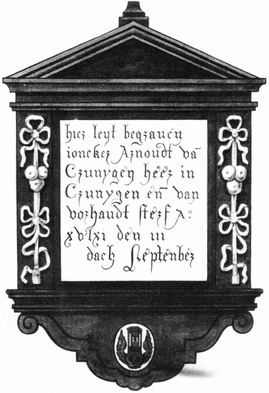 hier leyt begraven
ioncker Arnoudt vā
Crunygen heer in
Crunygen eñ van
vorhandt sterf A:
xvᶜlxi den iii
dach September